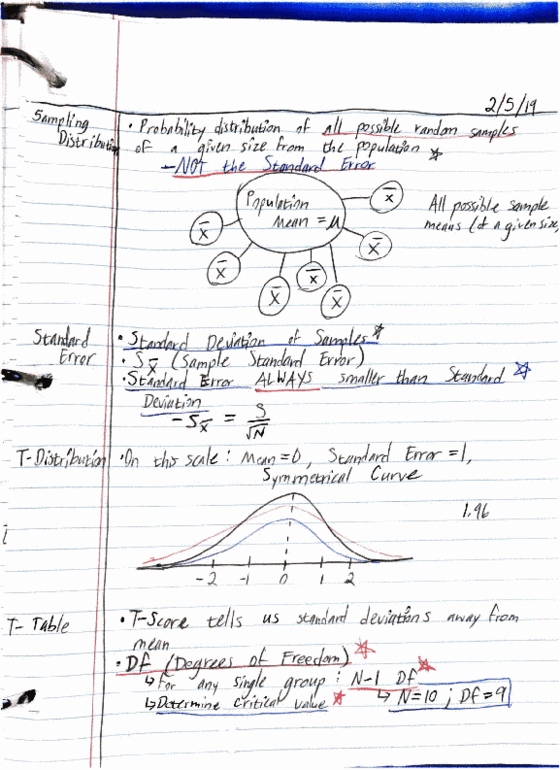 2/5/19
Sampling Distribution
• Probability distribution of all possible random samples
of a given size from the population ☆
- NOT the Standard Error
Population
Mean = μ
x̄
x̄
x̄
x̄
x̄
x̄
x̄
All possible sample
means (of a given size
Standard
Error
• Standard Deviation of Samples *
• Sx̄ (Sample Standard Error)
• Standard Error ALWAYS smaller than Standard ☆
Deviation
- Sx̄ = S/√N
T-Distribution
• On this scale: Mean = 0, Standard Error = 1,
Symmetrical Curve
1.96
-2 -1 0 1 2
T-Table
• T-Score tells us standard deviations away from
mean
• Df (Degrees of Freedom) ☆
↳ For any single group: N-1 Df ☆
↳ Determine critical value ☆ ↳ N=10; Df=9